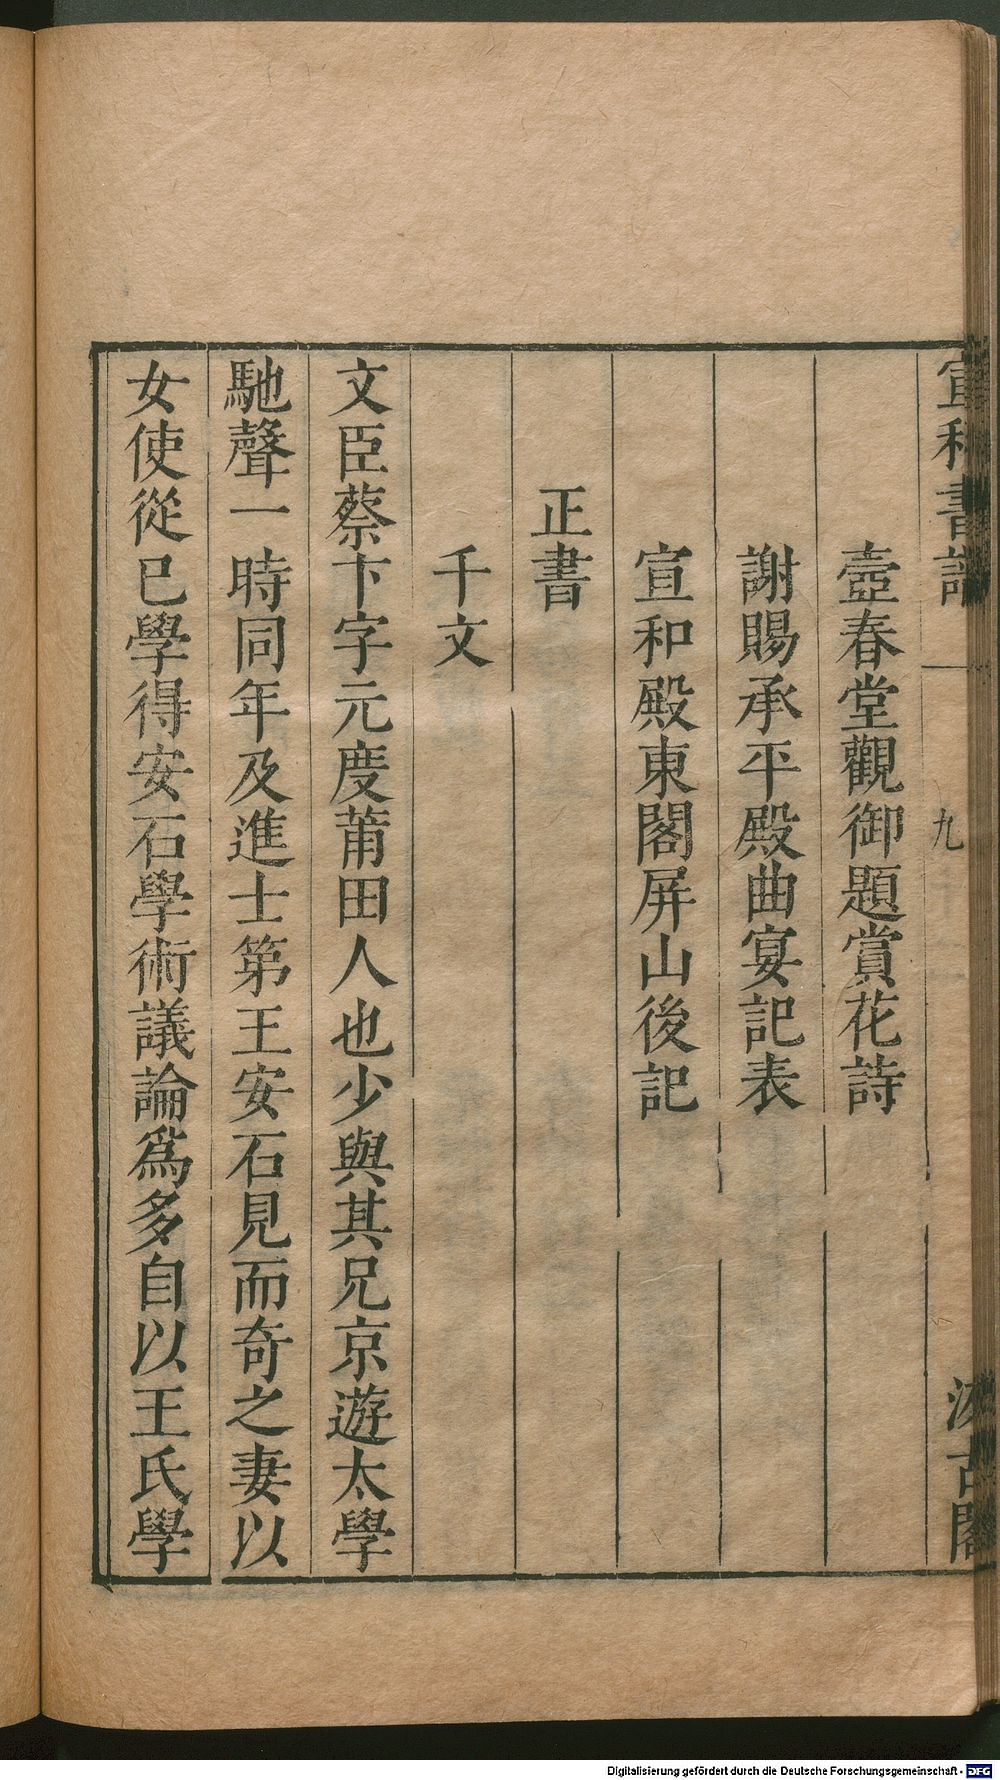 宣和書譜 九 汲古閣
壺春堂觀御題賞花詩
謝賜承平殿曲宴記表
宣和殿東閣屏山後記
正書
千文
文臣蔡卞字元度莆田人也少與其兄京遊太學
馳聲一時同年及進士第王安石見而奇之妻以
女使從已學得安石學術議論爲多自以王氏學
Digitalisierung gefördert durch die Deutsche Forschungsgemeinschaft - DFG